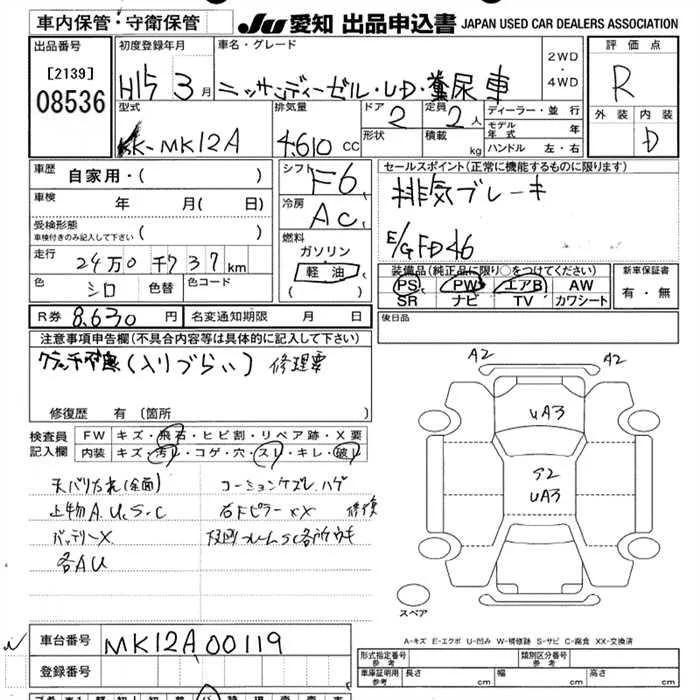 車内保管・守衛保管
JU 愛知 出品申込書 JAPAN USED CAR DEALERS ASSOCIATION
出品番号
[2139]
08536
初度登録年月
H15 3 月
車名・グレード
ニッサンディーゼル・UD・糞尿車
2WD
・
4WD
評価点
R
外装 内装
D
型式
KK-MK12A
排気量
4.610 CC
ドア 2
形状
定員 2 人
積載 kg
ディーラー・並行
モデル年式 年
ハンドル 左・右
車歴 自家用・( )
車検 年 月( 日)
受検形態
車検付きのみ記入して下さい ( )
走行 24万0千737km
色 シロ 色替 色コード
シフト F6
冷房 AC
燃料
ガソリン
軽油
( )
セールスポイント(正常に機能するものに限ります)
排気ブレーキ
E/G FD46
装備品(純正品に限り○をつけてください)
PS PW エアB AW
SR ナビ TV カワシート
新車保証書
有・無
R券 8,630 円 名変通知期限 月 日
後日品
注意事項申告欄(不具合内容等は具体的に記入して下さい)
クラッチ不良(入りづらい) 修理要
修復歴 有(箇所
検査員
記入欄
FW キズ・飛石・ヒビ割・リペア跡・X要
内装 キズ・汚レ・コゲ・穴・スレ・キレ・破レ
天バリたれ(全面)
コーションケズレ、ハゲ
上物A.U.S.C
右Fピラーxx 修復
バッテリーX
各AU
A2
A2
UA3
S2
UA3
スペア
A-キズ E-エクボ U-凹み W-補修跡 S-サビ C-腐食 XX-交換済
車台番号 MK12A00119
登録番号
型式指定番号
参考
類別区分番号
参考
車庫証明用
参考
長さ cm 幅 cm 高さ cm